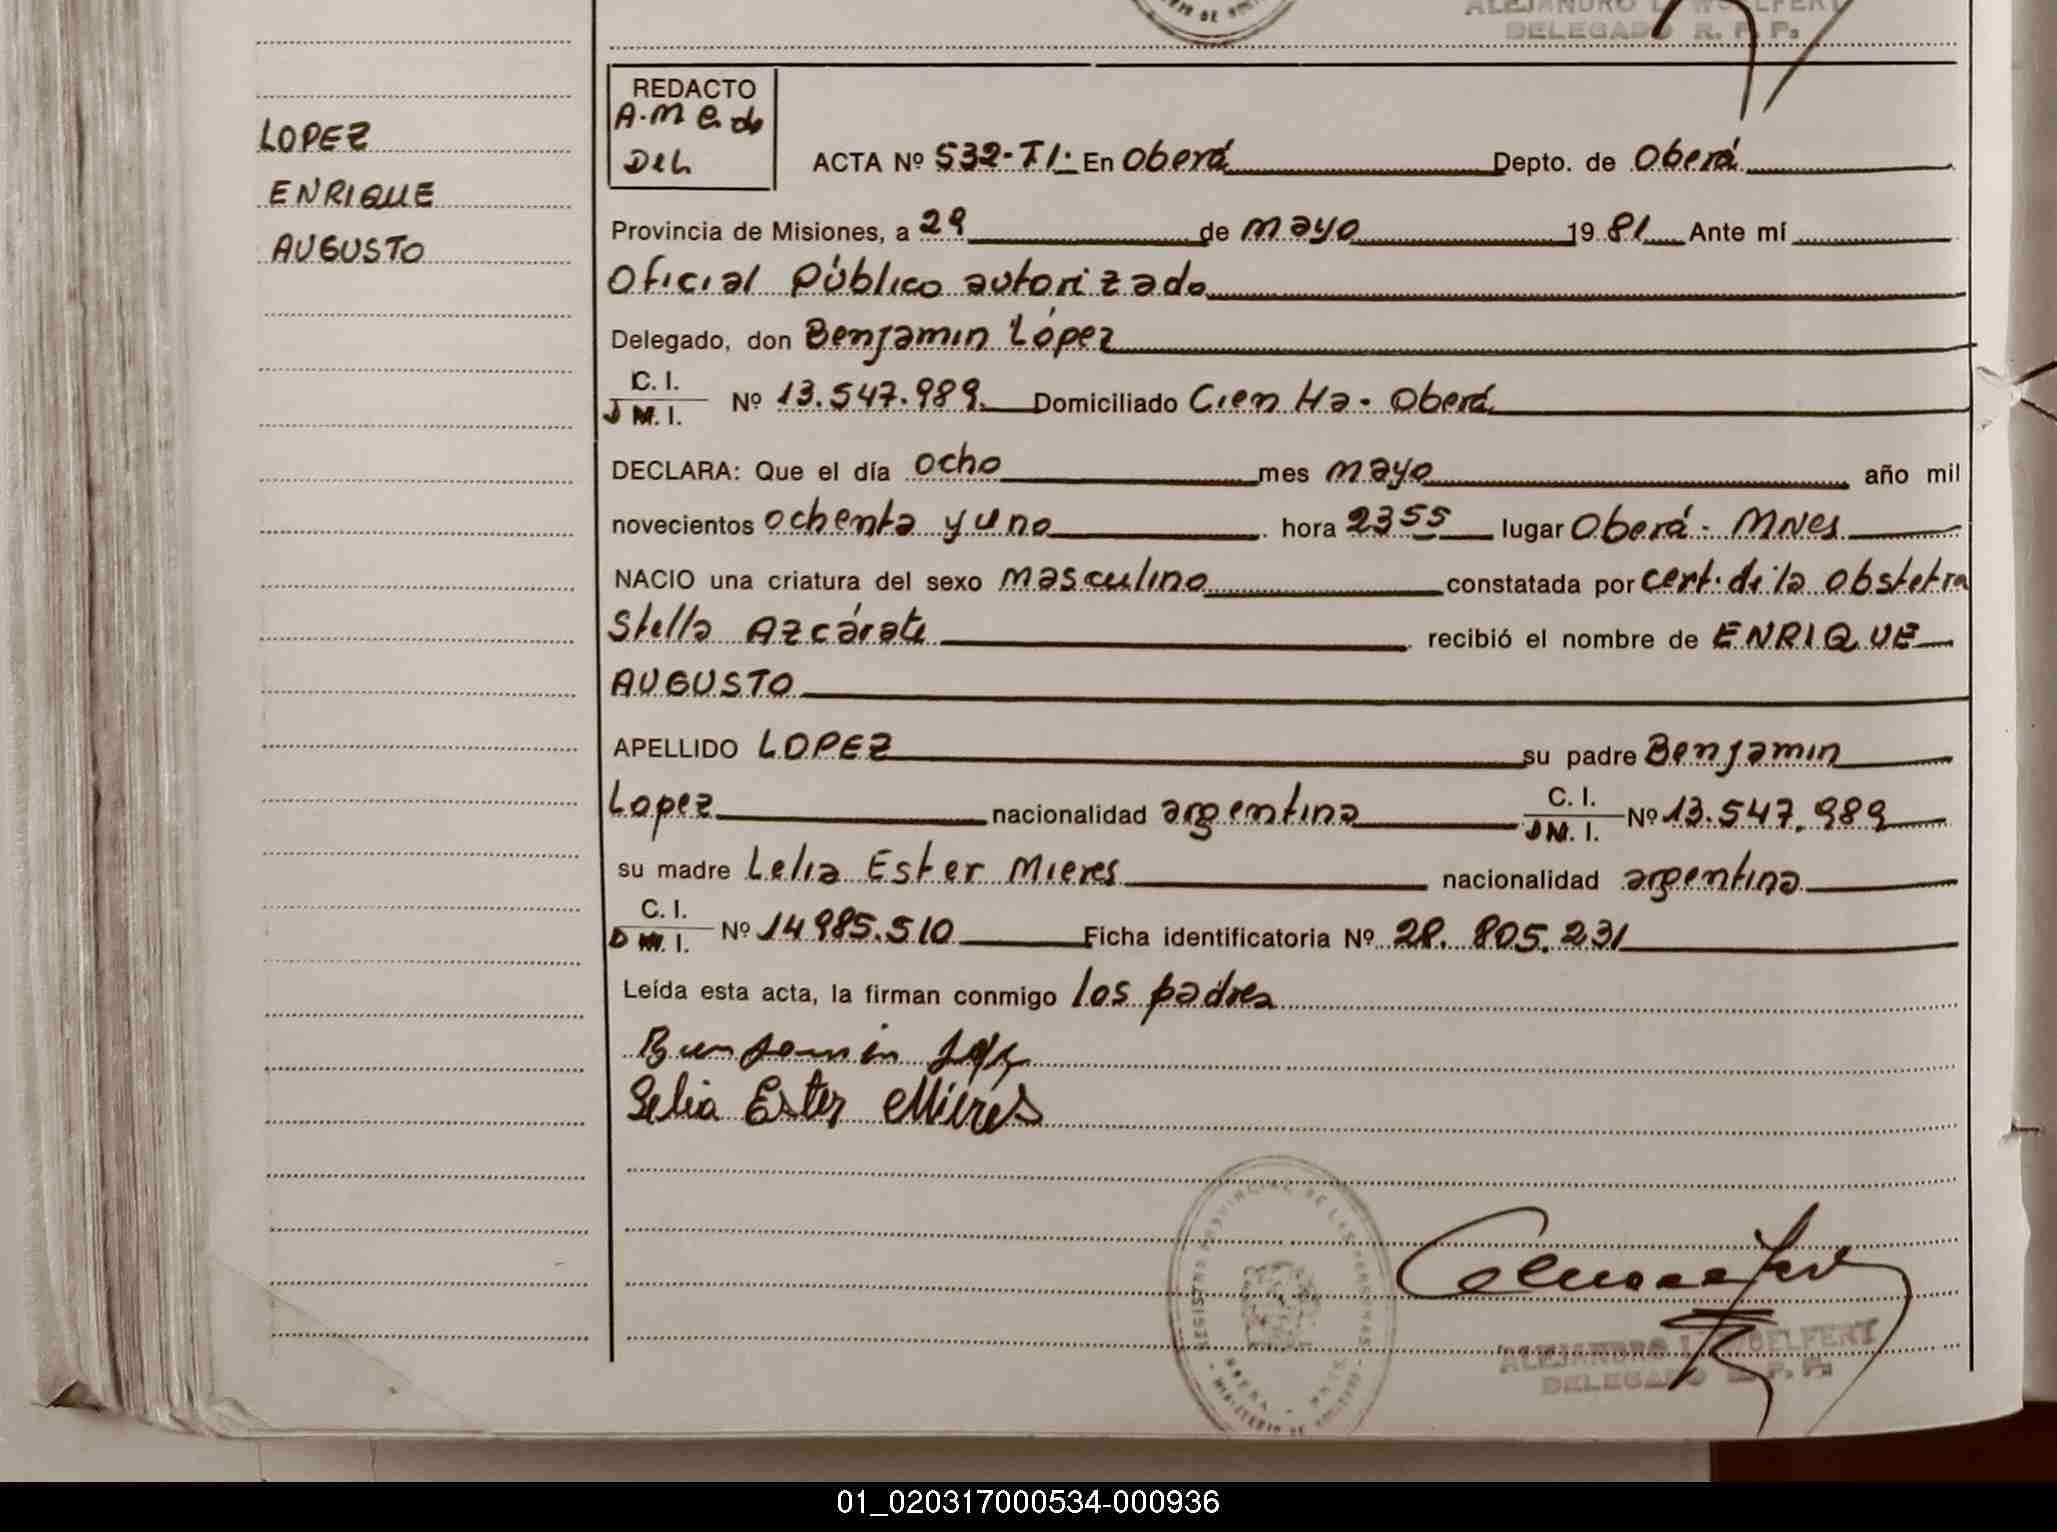 ALEJANDRO L. WOELFERT
DELEGADO R. P. P.
LOPEZ
ENRIQUE
AUGUSTO
REDACTO
A.M
DEL
ACTA Nº 532-TI. En Oberá Depto. de Oberá
Provincia de Misiones, a 29 de mayo 1981 Ante mí
Oficial Público autorizado
Delegado, don Benjamin López
C. I.
D M. I. Nº 13.547.989. Domiciliado Cien Ha - Oberá
DECLARA: Que el día ocho mes mayo año mil
novecientos ochenta y uno hora 2355 lugar Oberá - MNes
NACIO una criatura del sexo masculino constatada por cert. de la obstetra
Stella Azcárate recibió el nombre de ENRIQUE
AUGUSTO
APELLIDO LOPEZ su padre Benjamin
Lopez nacionalidad argentina C. I. D M. I. Nº 13.547.989
su madre Lelia Ester Mieres nacionalidad argentina
C. I.
D M. I. Nº 14985.510 Ficha identificatoria Nº 28.805.231
Leída esta acta, la firman conmigo los padres
Benjamin Lopez
Lelia Ester Mieres
REGISTRO PROVINCIAL DE LAS PERSONAS
MINISTERIO DE GOBIERNO
ALEJANDRO L. WOELFERT
DELEGADO R. P. P.
01_020317000534-000936